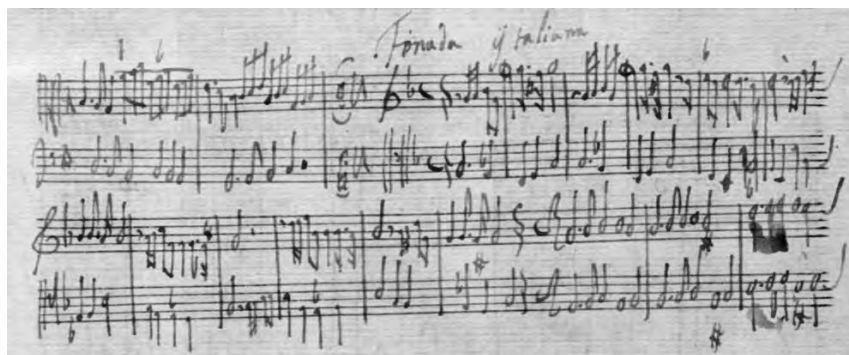 Tonada ÿtaliana